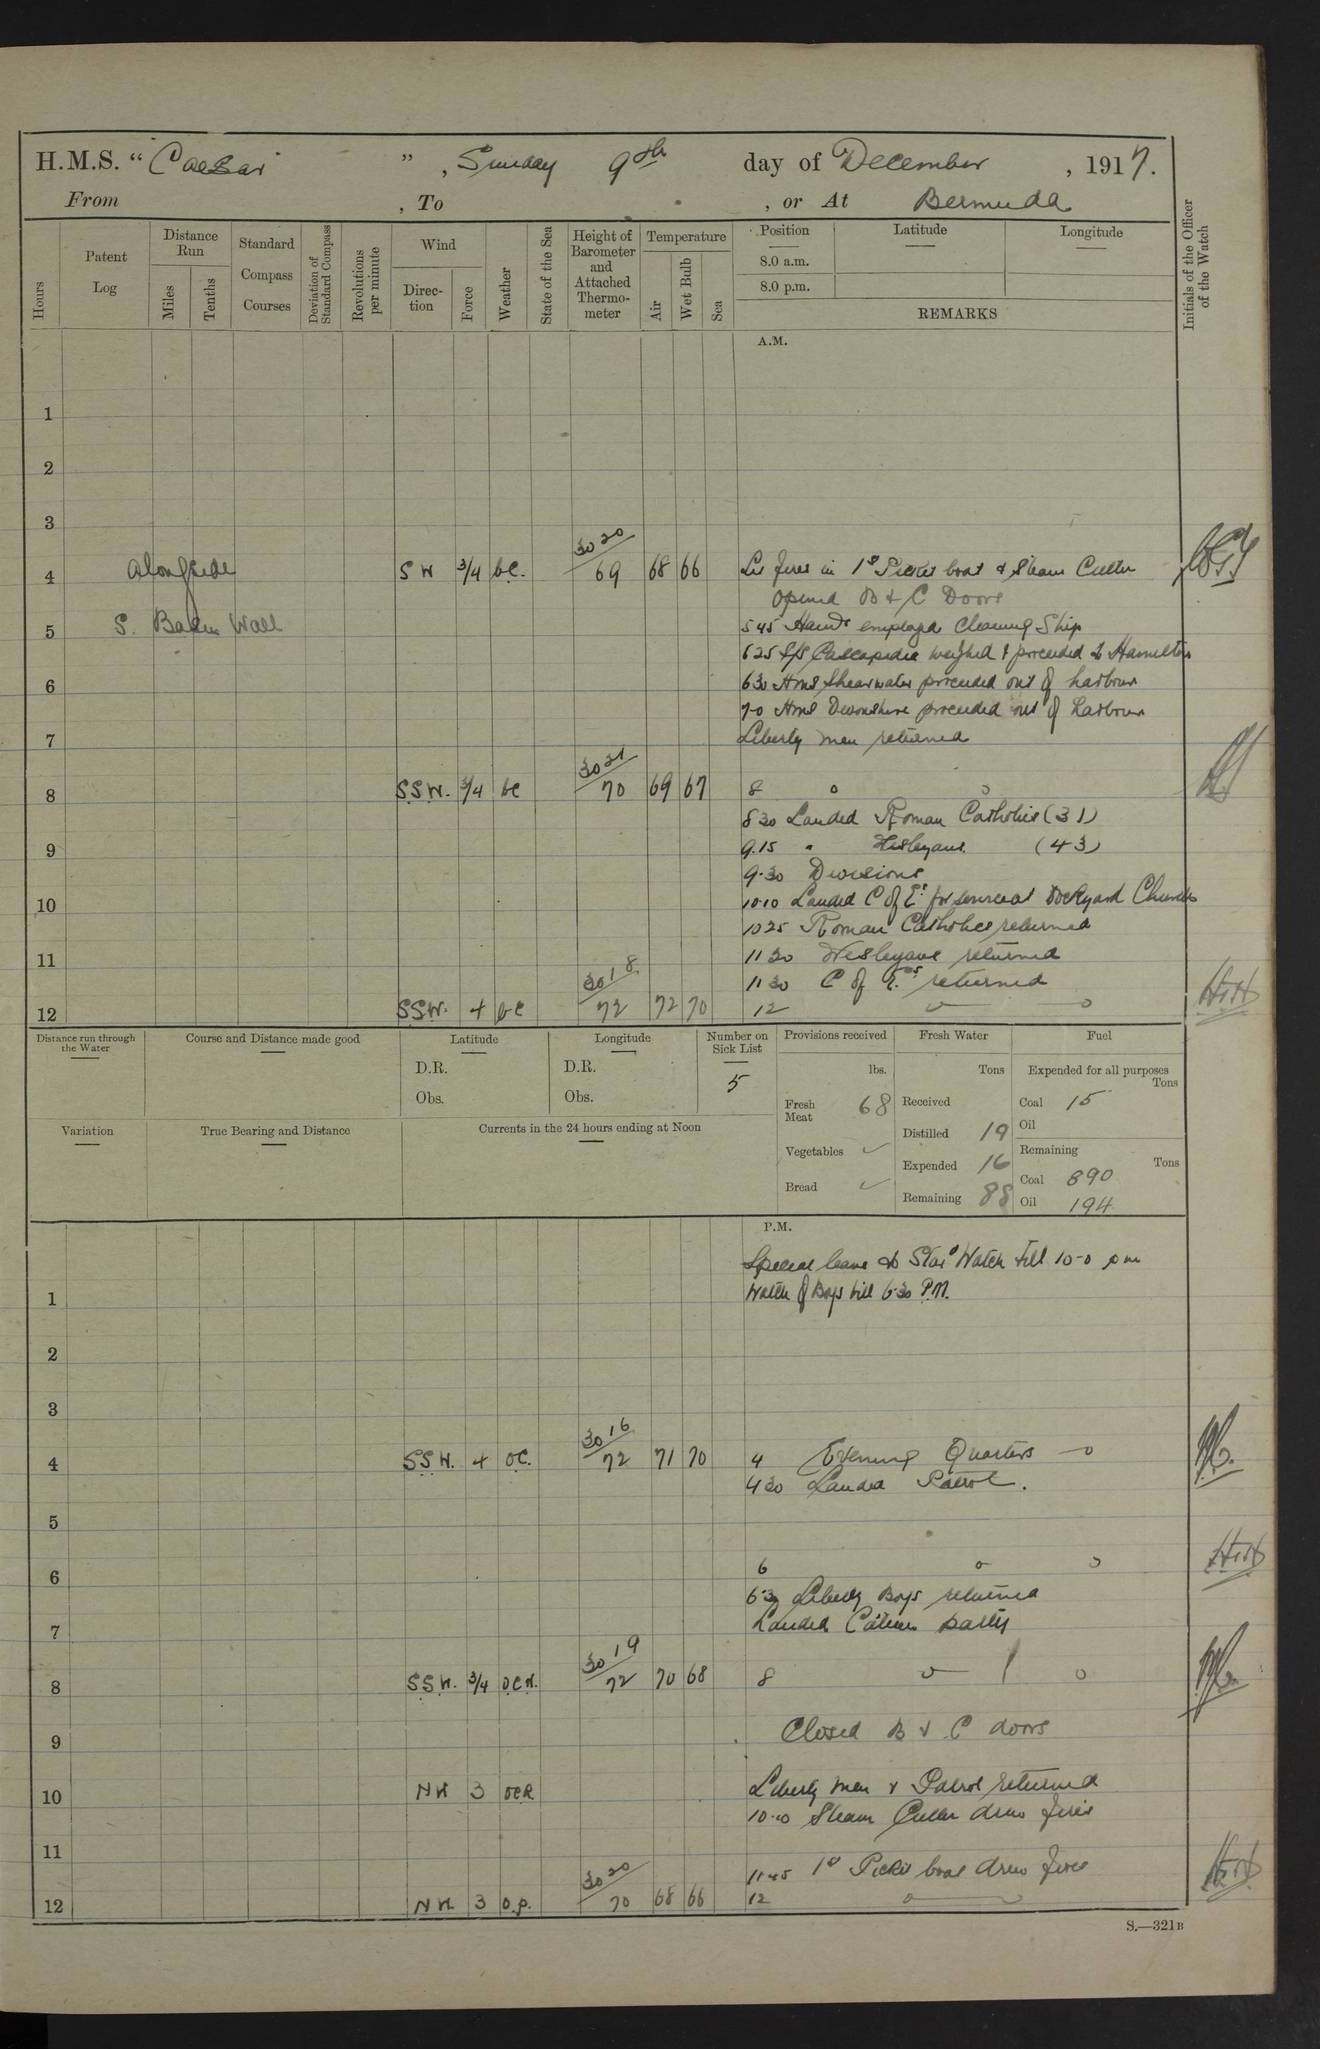 H.M.S. " Caesar ", Sunday 9th day of December, 1917.
From , To , or At Bermuda
Hours
Patent Log
Distance Run
Miles
Tenths
Standard Compass Courses
Deviation of Standard Compass
Revolutions per minute
Wind
Direction
Force
Weather
State of the Sea
Height of Barometer and Attached Thermometer
Temperature
Air
Wet Bulb
Sea
Position
8.0 a.m.
8.0 p.m.
Latitude
Longitude
REMARKS
Initials of the Officer of the Watch
A.M.
1
2
3
4 Alongside SW 3/4 bc. 30 20/69 68 66 Lit fires in 1st Picket boat & Steam Cutter
Opened B & C Doors
5 S. Basin Wall 5 45 Hands employed Cleaning Ship
6 25 S/S Cascapedia weighed & proceeded to Hamilton
6 6 30 Hms Shearwater proceeded out of harbour
7-0 Hms Devonshire proceeded out of harbour
7 Liberty men returned
8 SSW. 3/4 bc 30 21/70 69 67 8
8 30 Landed Roman Catholics (31)
9 9.15 " Wesleyans (43)
9.30 Divisions
10 10.10 Landed C of Es for service at Dockyard Church
10 25 Roman Catholics returned
11 11 20 Wesleyans returned
11 30 C of Es returned
12 SSW. 4 bc 30 18/72 72 70 12
Distance run through the Water
Course and Distance made good
Latitude
D.R.
Obs.
Longitude
D.R.
Obs.
Number on Sick List
5
Provisions received
lbs.
Fresh Meat 68
Vegetables ✓
Bread ✓
Fresh Water
Tons
Received
Distilled 19
Expended 16
Remaining 88
Fuel
Expended for all purposes
Tons
Coal 15
Oil
Remaining
Tons
Coal 890
Oil 194
Variation
True Bearing and Distance
Currents in the 24 hours ending at Noon
P.M.
Special leave to Star'd Watch till 10-0 pm
1 Watch of Boys till 6.30 P.M.
2
3
4 SSW. 4 oc. 30 16/72 71 70 4 Evening Quarters
4 30 Landed Patrol.
5
6 6
6 30 Liberty Boys returned
7 Landed party
8 SSW. 3/4 30 19/72 70 68 8
9 Closed B & C doors
10 NW 3 ocR Liberty men & Patrol returned
10.10 Steam Cutter drew fires
11
11 45 1st Picket boat drew fires
12 NW 3 o.p. 30 20/70 68 66 12
S.—321B